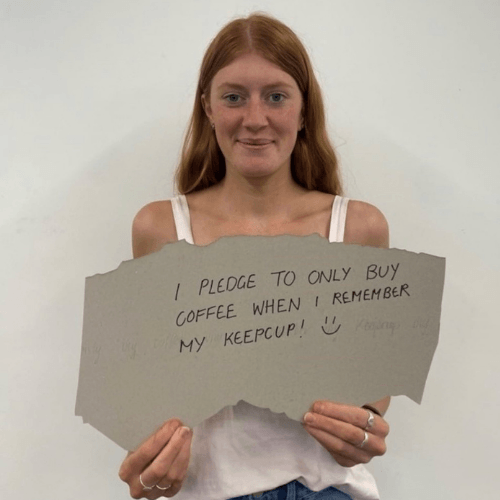 I PLEDGE TO ONLY BUY
COFFEE WHEN I REMEMBER
MY KEEPCUP! :)